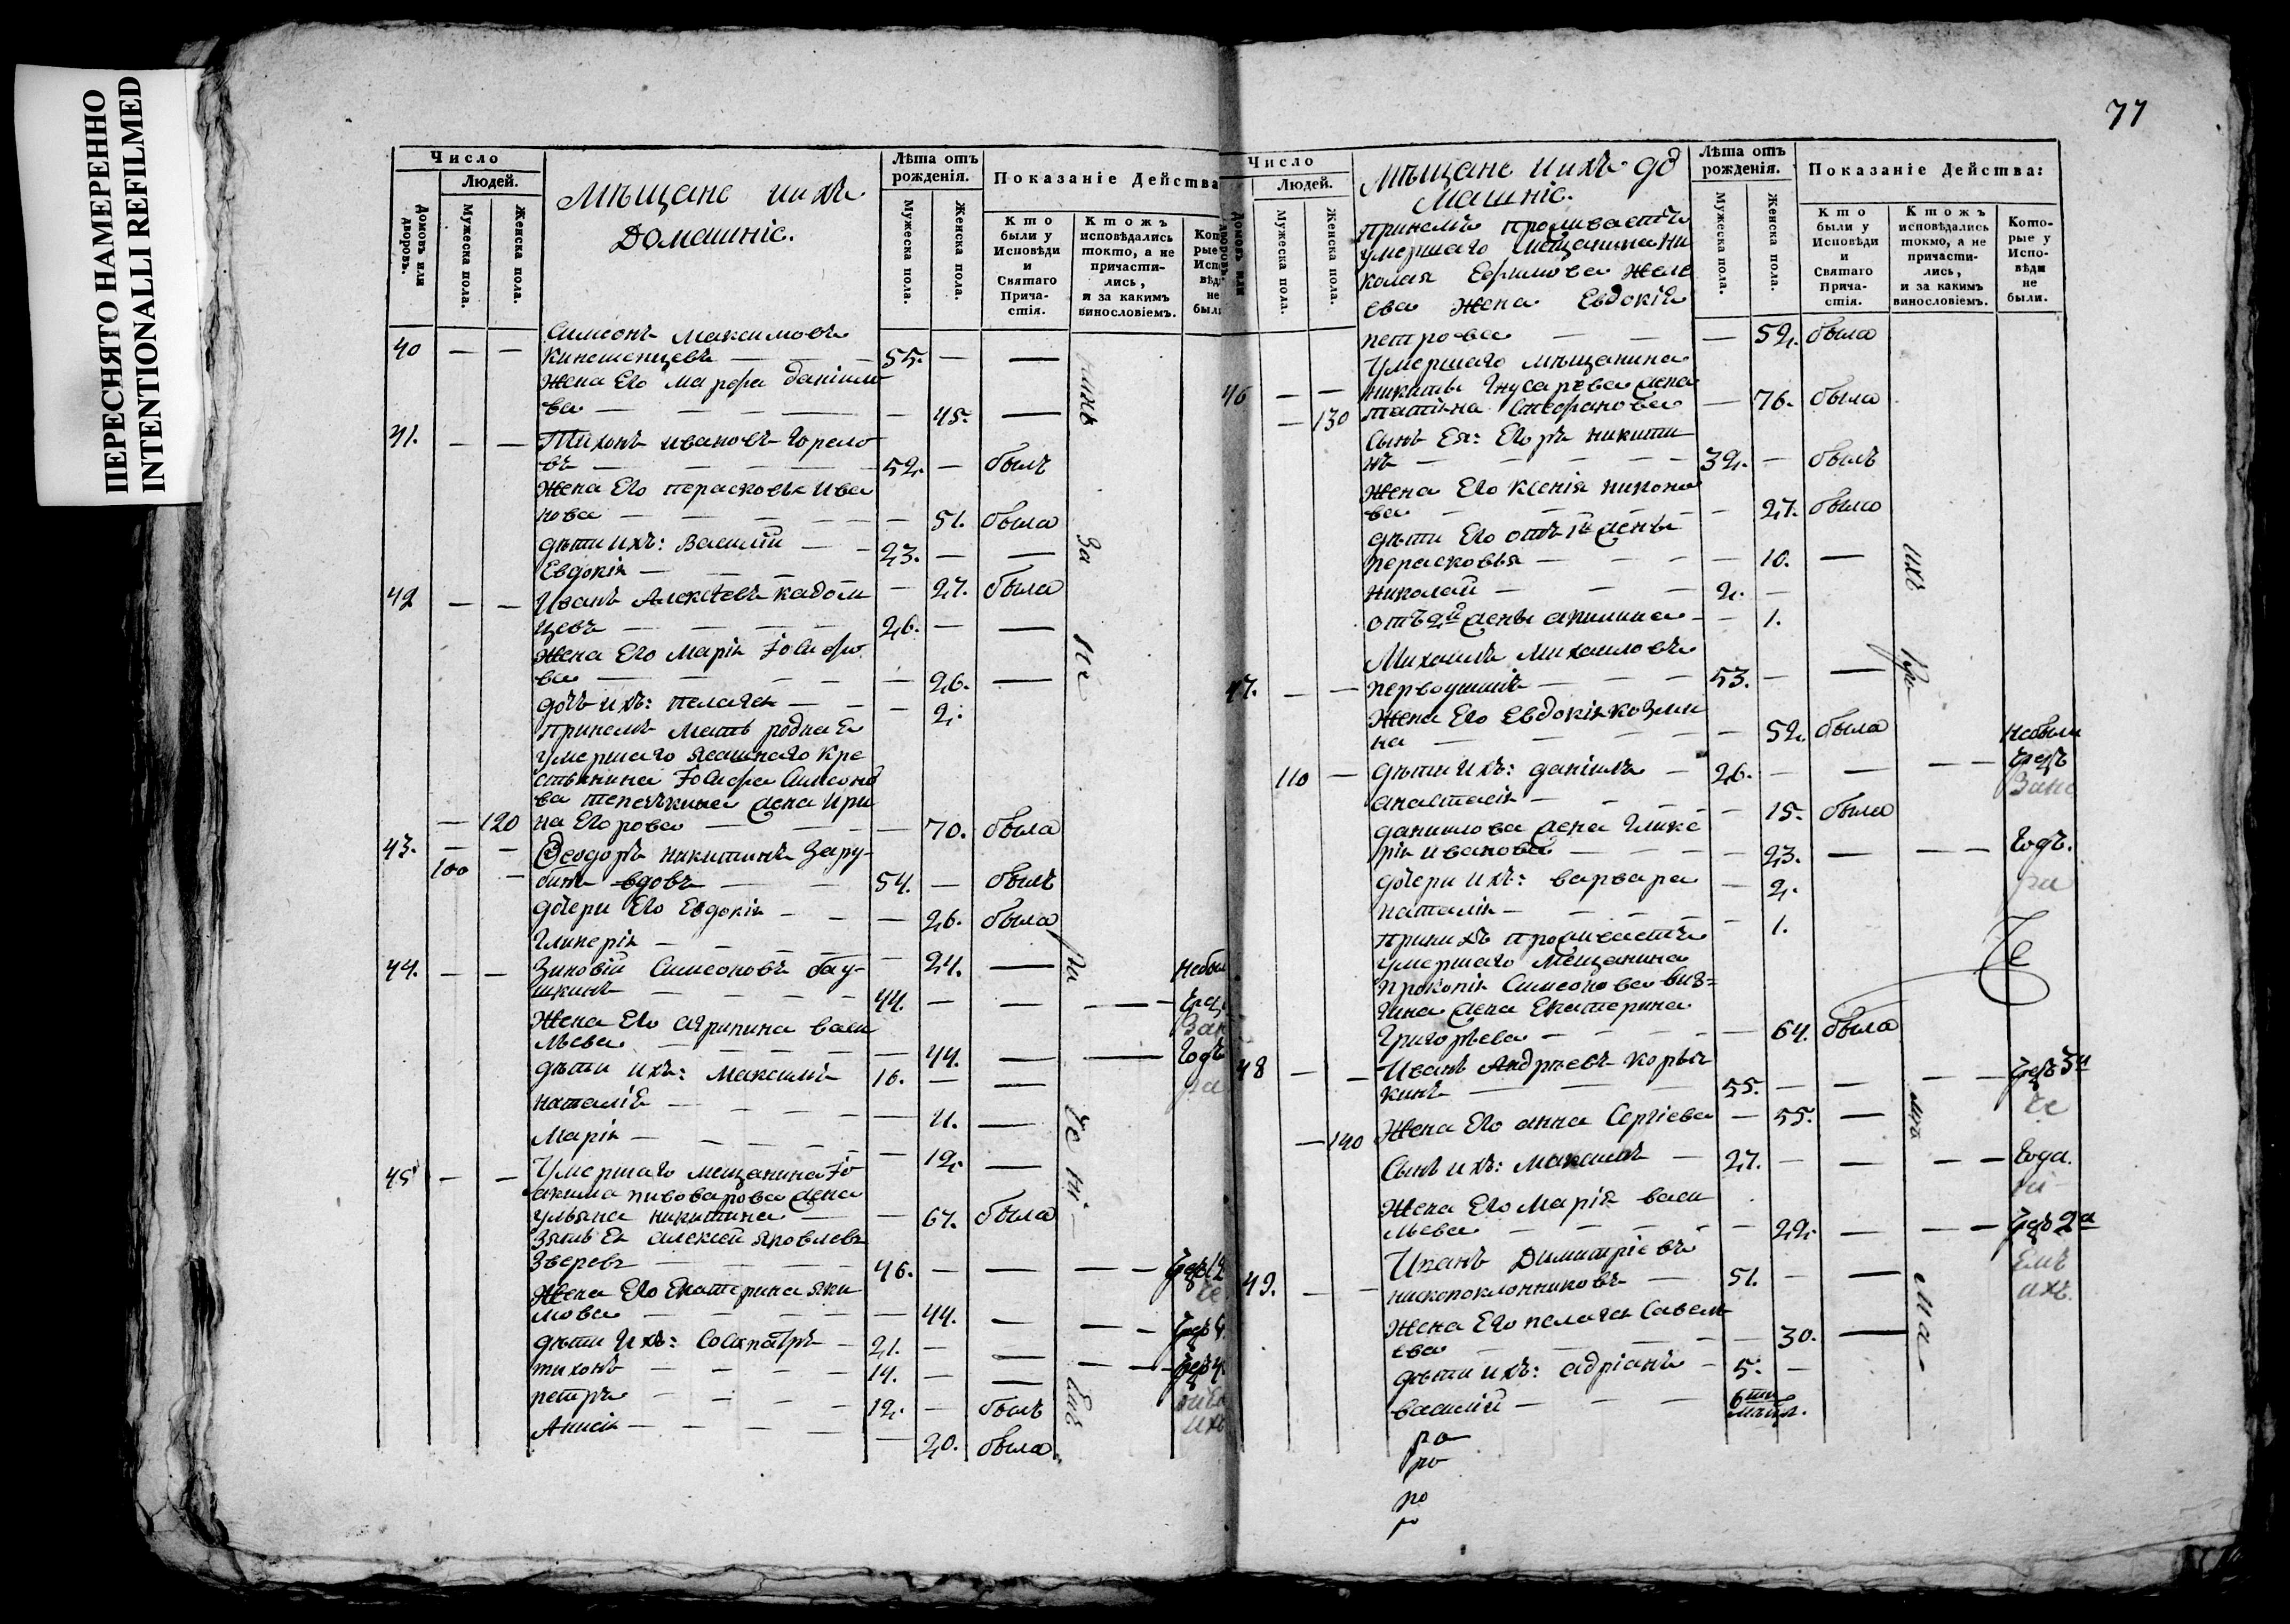 ПЕРЕСНЯТО НАМЕРЕННО
INTENTIONALLI REFILMED
Число
Людей.
Домовъ или дворовъ.
Мужеска пола.
Женска пола.
Мѣщане и ихъ
Домашніе.
Лѣта отъ
рожденія.
Мужеска пола.
Женска пола.
Показаніе Действа
Кто
были у
Исповѣди
и
Святаго
Прича-
стія.
Ктожъ
исповѣдались
токмо, а не
причасти-
лись,
и за какимъ
винословіемъ.
Кото
рые
Испо
вѣди
не
были
Симеонъ Максимовъ
40 — — Кинешемцевъ — 55. — —
Жена Его Марфа Даніило
ва — — 45. —
41. — — Тихонъ Ивановъ Горело
въ — 52. — былъ
Жена Его Перасковья Ива
нова — — 51. была
дѣти ихъ: Василій — 23. — —
Евдокія — — 27. была
42 — — Иванъ Алексѣевъ Кадом
цевъ — 26. — —
Жена Его Марія Іосифо
ва — — 26. —
дочь ихъ: Пелагея — — 2.
При немъ Мать родная
умершаго ясашнаго Кре
стьянина Іосифа Симеоно
ва жена Ири
— 120 на Егорова — — 70. была
43. — — Ѳеодоръ Никитинъ Зару-
100 — бинъ вдовъ — 54. — былъ
дочери Его Евдокія — — 26. была
Гликерія — — 24. —
44. — — Зиновій Симеоновъ Бау-
шкинъ — 44. — — — небыл
Жена Его Агрипина Васи
льева — — 44. — — годъ
дѣти ихъ: Максимъ 16. — —
Наталія — — 11. —
Марія — — 12. —
45 — — Умершаго мещанина Іо
акима Пивоварова жена
Ульяна Никитина — — 67. была
Зять Ея Алексей Яковлевъ
Зверевъ — 46. — — —
Жена Его Екатерина Яки
мова — — 44. — —
дѣти ихъ: Сосипатръ — 21. — — —
Тихонъ — 14. — — —
Петръ — 12. — былъ
Анисія — — 20. была
77
Число
Людей.
Домовъ или дворовъ.
Мужеска пола.
Женска пола.
Мѣщане и ихъ до
машніе.
Лѣта отъ
рожденія.
Мужеска пола.
Женска пола.
Показаніе Действа:
Кто
были у
Исповѣди
и
Святаго
Прича-
стія.
Ктожъ
исповѣдались
токмо, а не
причасти-
лись,
и за какимъ
винословіемъ.
Кото-
рые у
Испо-
вѣди
не
были.
При немъ проживаетъ
умершаго мещанина Ни
колая Ефимова
ева Жена Евдокія
Петрова — — 52. была
Умершаго мѣщанина
46 — — Никиты Гнусарева жена
— 130 Татіяна Стефанова — 76. была
Сынъ Ея: Егоръ Никити
нъ — 32. — былъ
Жена Его Ксенія Никоно
ва — — 27. была
дѣти Его отъ 1й жены
Перасковья — — 10. —
Николай — 2. —
отъ 2й жены Акилина — — 1.
Михаилъ Михаиловъ
47. — — Первоушинъ — 53. — —
Жена Его Евдокія Козми
на — — 52. была
110 — дѣти ихъ: Даніилъ — 26. — — — небыли
Анастасія — — 15. была
Данилова жена Глике
рія Иванова — — 23. — — годъ.
дочери ихъ: Варвара — 2.
Наталія — — 1.
При нихъ проживаетъ
умершаго Мещанина
Прокопія Симеонова Виз-
гина жена Екатерина
Григорьева — — 64. была
48 — — Иванъ Андреевъ Коряч
кинъ — 55. — — —
— 140 Жена Его Анна Сергіева — 55. —
Сынъ ихъ: Максимъ — 27. — — — года.
Жена Его Марія Васи
льева — — 22. — —
Иванъ Димитріевъ
49. — — Нископоклонниковъ — 51. — —
Жена Его Пелагея Савель
ева — — 30. —
дѣти ихъ: Адріанъ — 5. —
Василій — 6ти
мѣся.
ро
ро
ро
ро